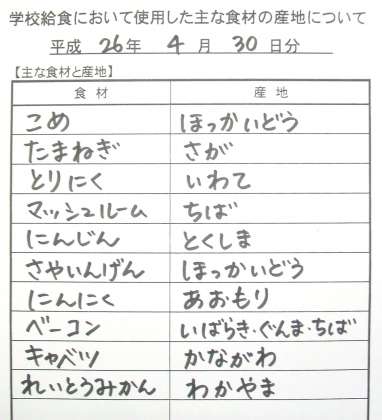 学校給食において使用した主な食材の産地について
平成 26年 4月 30日分
【主な食材と産地】
食材 産地
こめ ほっかいどう
たまねぎ さが
とりにく いわて
マッシュルーム ちば
にんじん とくしま
さやいんげん ほっかいどう
にんにく あおもり
ベーコン いばらき・ぐんま・ちば
キャベツ かながわ
れいとうみかん わかやま